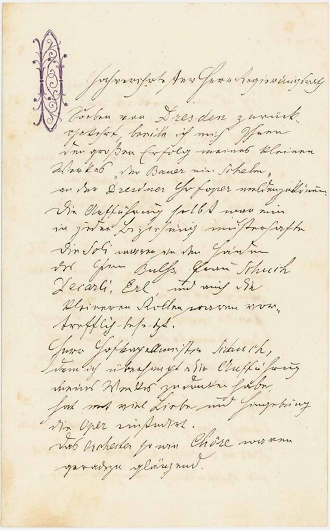 Hochverehrter Herr Regierungsrath
Soeben von Dresden zurück-
gekehrt, beeile ich mich Ihnen
den großen Erfolg meines kleinen
Werkes „Der Bauer ein Schelm“
an der Dresdner Hofoper melden zu können.
Die Aufführung selbst war eine
in jeder Beziehung musterhafte
die Soli waren in den Händen
des Herrn Bulss, Frau Schuch
Decarli, Erl und auch die
kleineren Rollen waren vor-
trefflich besetzt.
Herr Hofkapellmeister Schuch,
dem ich überhaupt die Aufführung
meines Werkes zu danken habe,
hat mit viel Liebe und Hingebung
die Oper einstudirt.
Das Orchester so wie Chöre waren
geradezu glänzend.